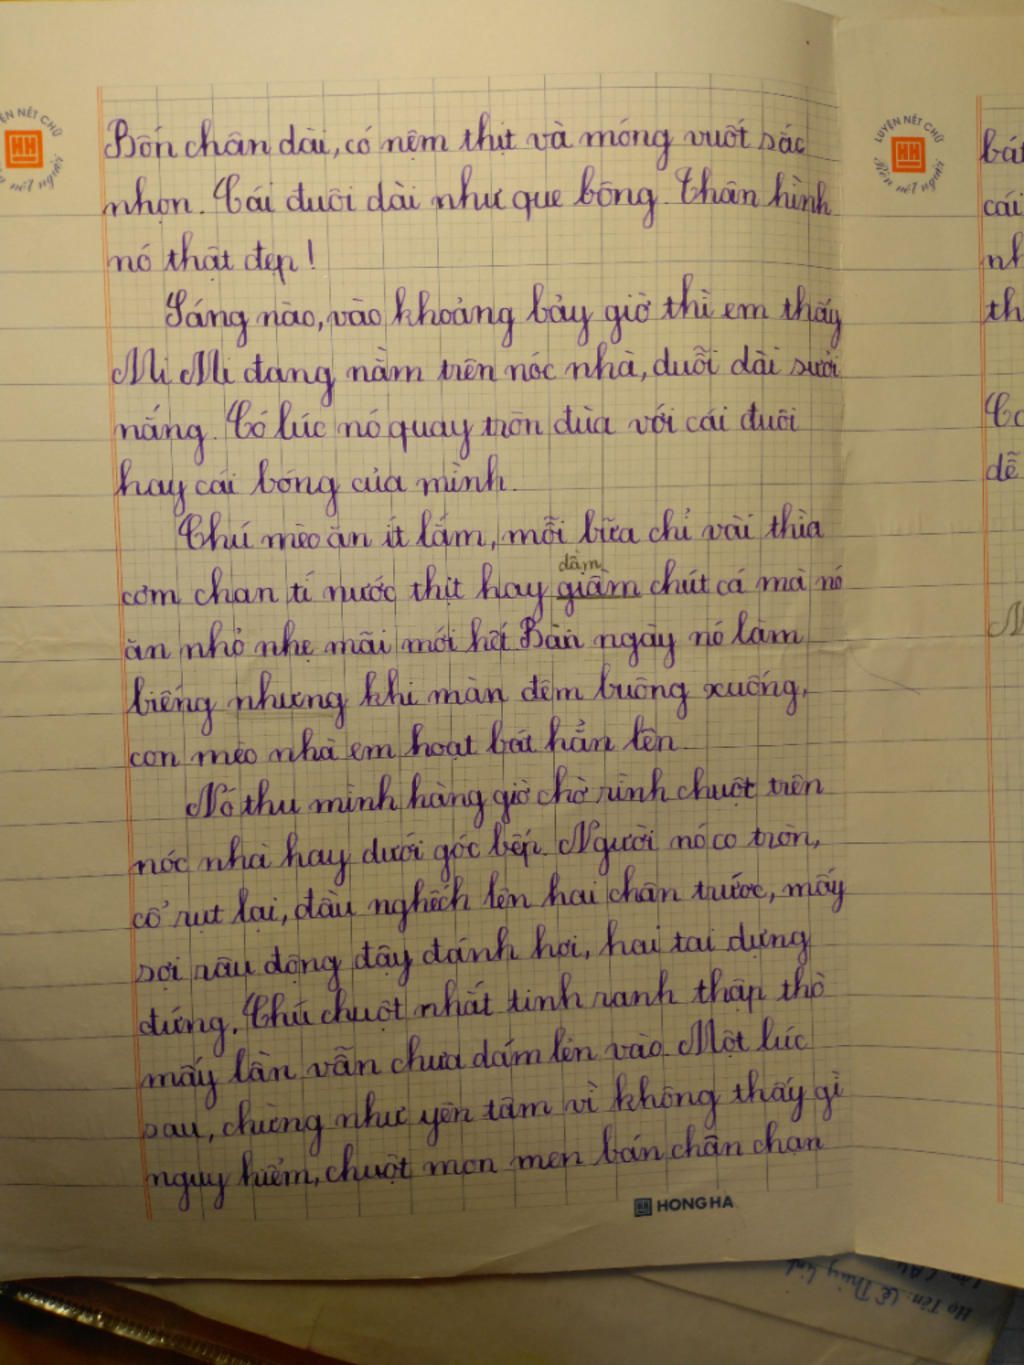 LUYỆN NÉT CHỮ
Rèn nết người
HH
Bốn chân dài, có nệm thịt và móng vuốt sắc
nhọn. Cái đuôi dài như que bông. Thân hình
nó thật đẹp!
Sáng nào, vào khoảng bảy giờ thì em thấy
Mi Mi đang nằm trên nóc nhà, duỗi dài sưởi
nắng. Có lúc nó quay tròn đùa với cái đuôi
hay cái bóng của mình.
Chú mèo ăn ít lắm, mỗi bữa chỉ vài thìa
dầm
cơm chan tí nước thịt hay giầm chút cá mà nó
ăn nhỏ nhẹ mãi mới hết. Ban ngày nó làm
biếng nhưng khi màn đêm buông xuống,
con mèo nhà em hoạt bát hẳn lên.
Nó thu mình hàng giờ chờ rình chuột trên
nóc nhà hay dưới góc bếp. Người nó co tròn,
cổ rụt lại, đầu nghếch lên hai chân trước, mấy
sợi râu động đậy đánh hơi, hai tai dựng
đứng. Chú chuột nhắt tinh ranh thập thò
mấy lần vẫn chưa dám lẻn vào. Một lúc
sau, chừng như yên tâm vì không thấy gì
nguy hiểm, chuột mon men bán chân chạn
HH HONG HA
LUYỆN NÉT CHỮ
Rèn nết người
HH
bát
cái
nh
th
Co
dễ
Họ Tên: Lê Thùy Linh